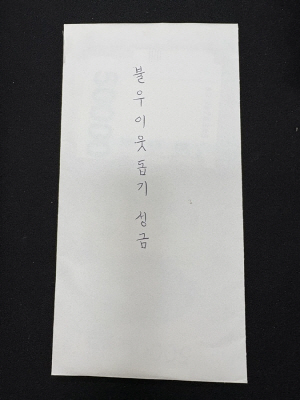 불우이웃돕기 성금